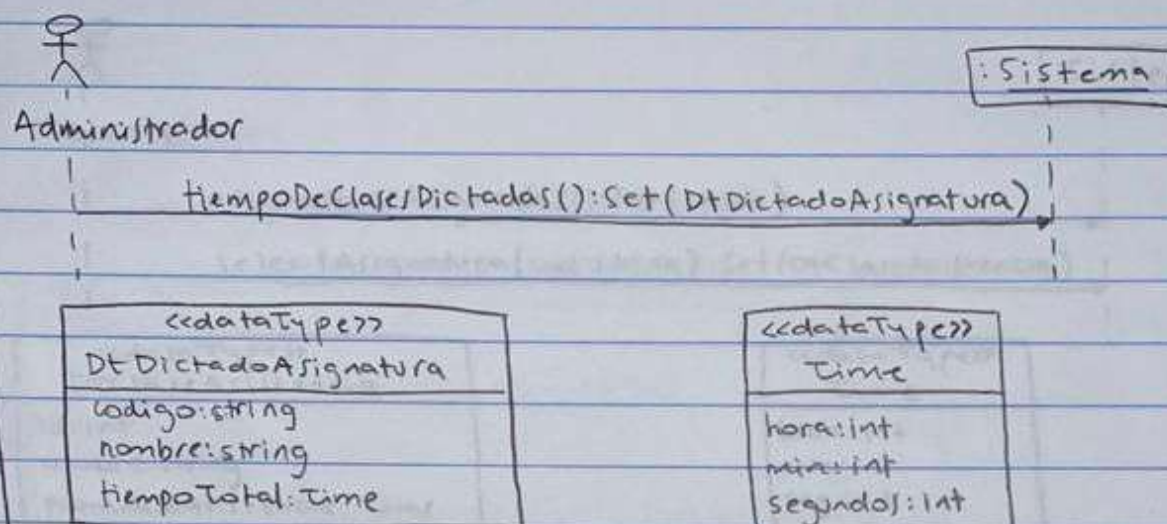 : Sistema
Administrador
tiempoDeClasesDictadas():Set(DtDictadoAsignatura)
<<dataType>>
DtDictadoAsignatura
codigo:string
nombre:string
tiempoTotal:Time
<<dataType>>
Time
hora:int
min:int
segundos:int